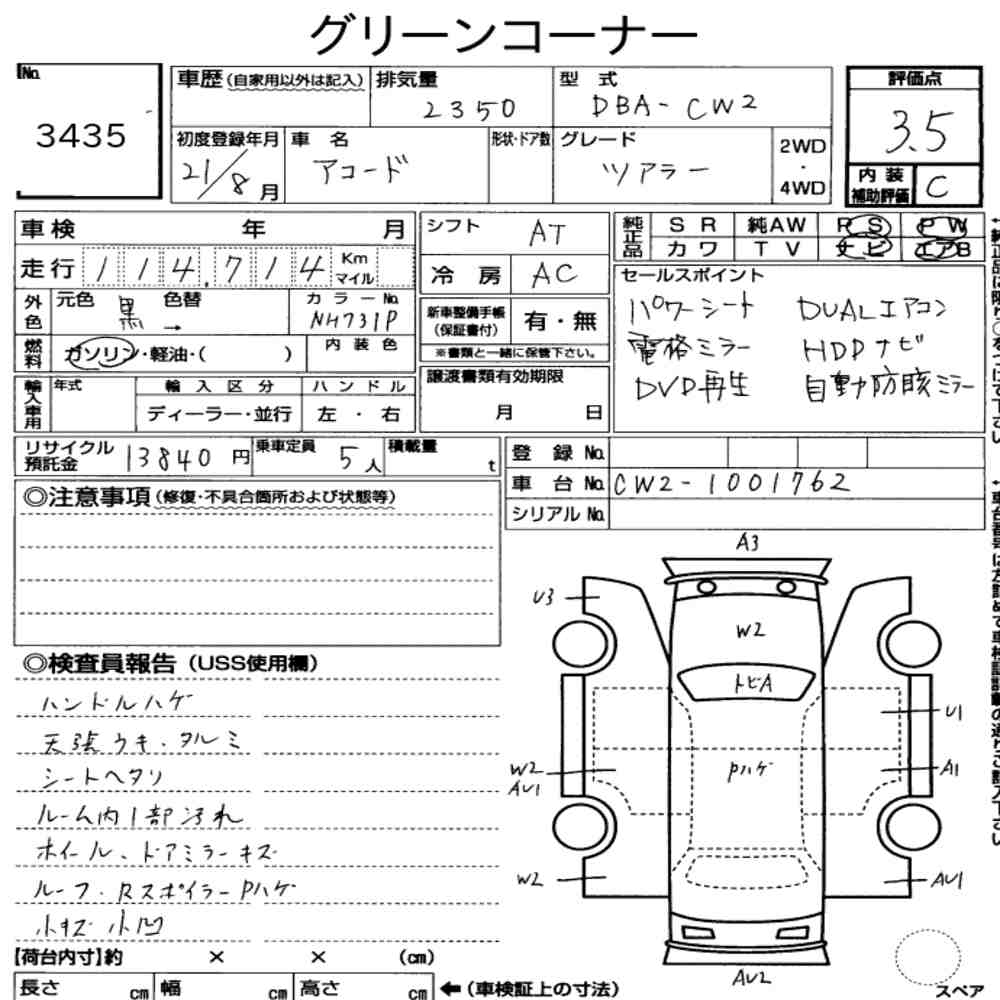 グリーンコーナー
No. 3435
車歴(自家用以外は記入) 排気量 2350 型式 DBA-CW2
初度登録年月 21/8月 車名 アコード 形状・ドア数 グレード ツアラー 2WD・4WD
評価点 3.5
内装補助評価 C
車検 年 月
走行 114,714 Km マイル
外色 元色 黒 → 色替 カラーNo. NH731P
燃料 ガソリン・軽油・( ) 内装色
輸入車用 年式 輸入区分 ディーラー・並行 ハンドル 左・右
シフト AT
冷房 AC
新車整備手帳(保証書付) 有・無
※書類と一緒に保管下さい。
譲渡書類有効期限 月 日
純正品 SR 純AW PS PW
カワ TV ナビ エアB
セールスポイント
パワーシート DUALエアコン
電格ミラー HDDナビ
DVD再生 自動防眩ミラー
リサイクル預託金 13840円 乗車定員 5人 積載量 t
登録No.
車台No. CW2-1001762
シリアルNo.
◎注意事項(修復・不具合箇所および状態等)
◎検査員報告(USS使用欄)
ハンドルハゲ
天張ウキ・タルミ
シートヘタリ
ルーム内1部汚れ
ホイール、ドアミラーキズ
ルーフ・RスポイラーPハゲ
小キズ小凹
A3
U3
W2
トビA
U1
W2 AU1
Pハゲ
A1
W2
AU1
AU2
スペア
【荷台内寸】約 × × (cm)
長さ cm 幅 cm 高さ cm ←(車検証上の寸法)